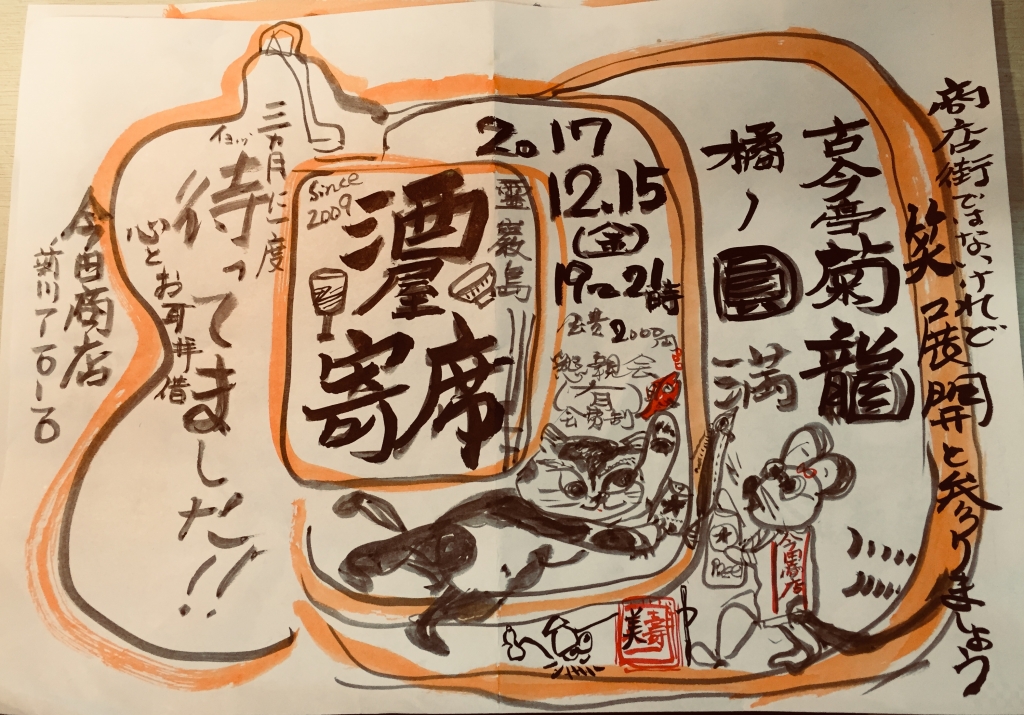 商店街ではないけれど
笑店開と参りましょう
古今亭菊龍
橘ノ圓満
2017
12.15
(金)
19–21時
会費2000円
懇親会
(有)
会費制
霊巌島
酒屋
寄席
since
2009
三カ月に一度
イヨッ
待ってました!!
心とお耳拝借
今田商店
新川1-10-10
Beer
今田商店
美寿